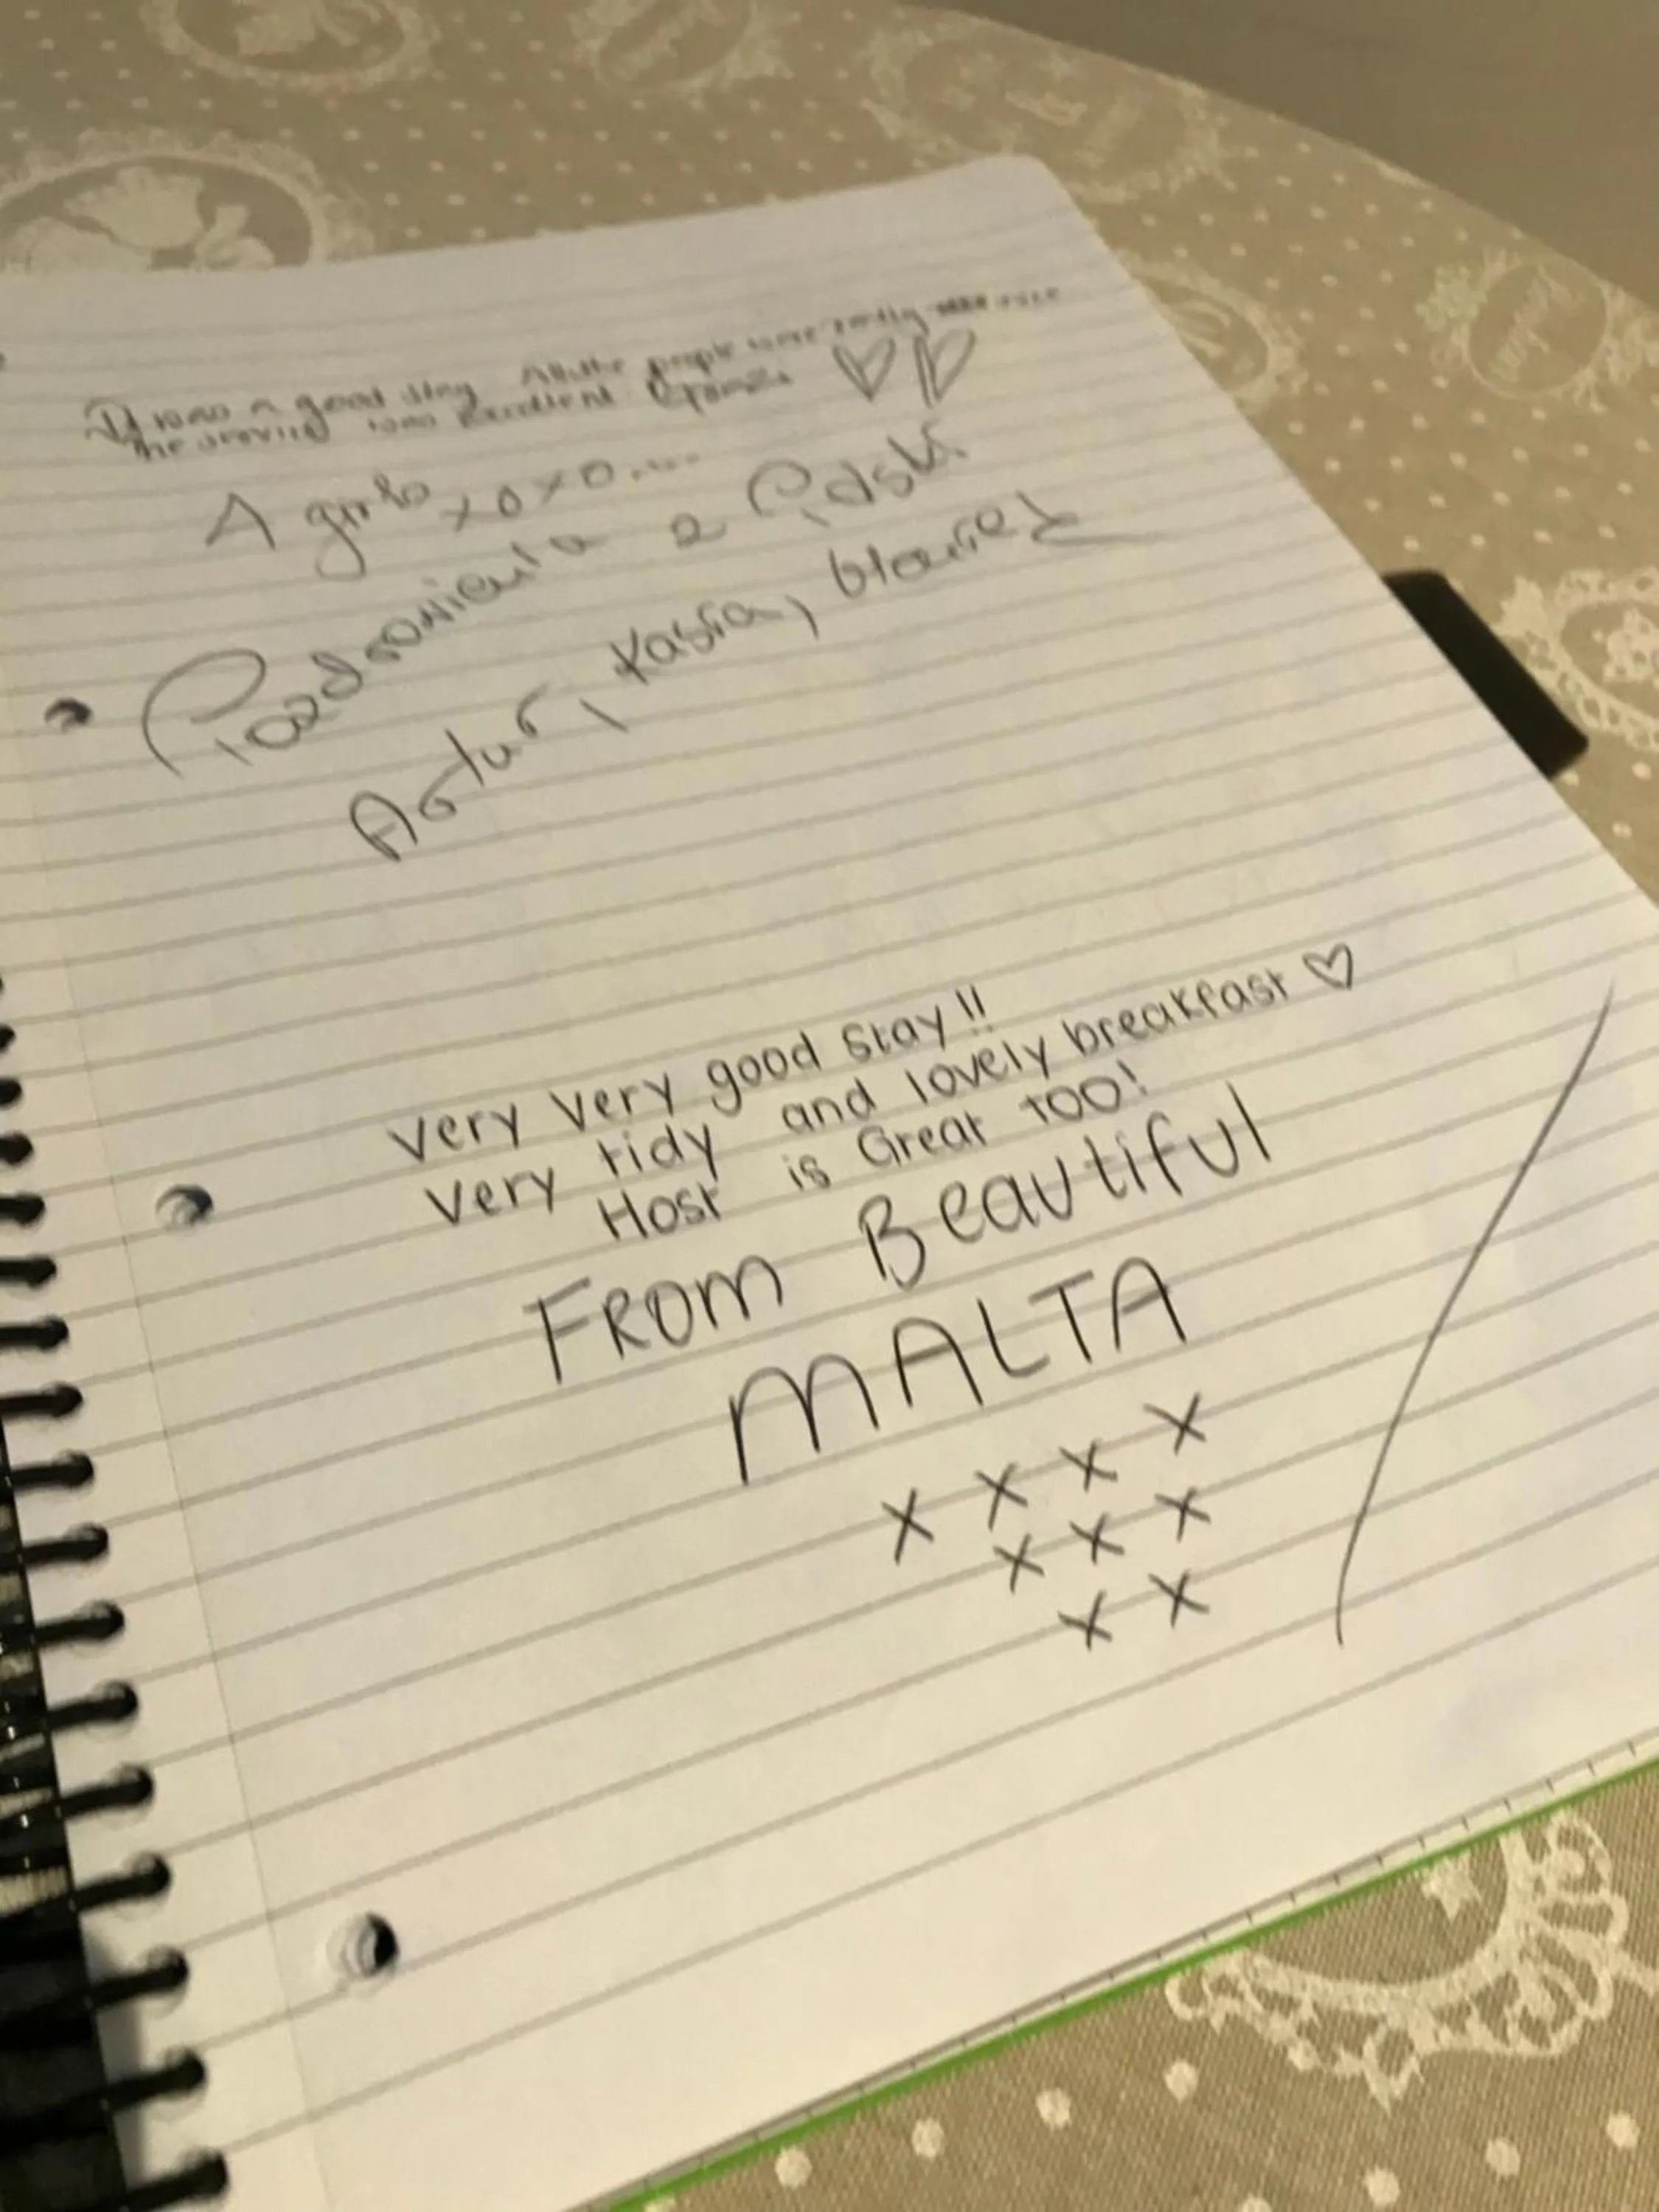 It was a good stay. All the people were really nice
the service was Excellent
A girls xoxo....
Pozdrowienia z Polski
Artur, Kasia, Błażej
very very good stay!!
very tidy and lovely breakfast ♡
Host is Great too!
FROM Beautiful
MALTA
x x x x
x x x
x x